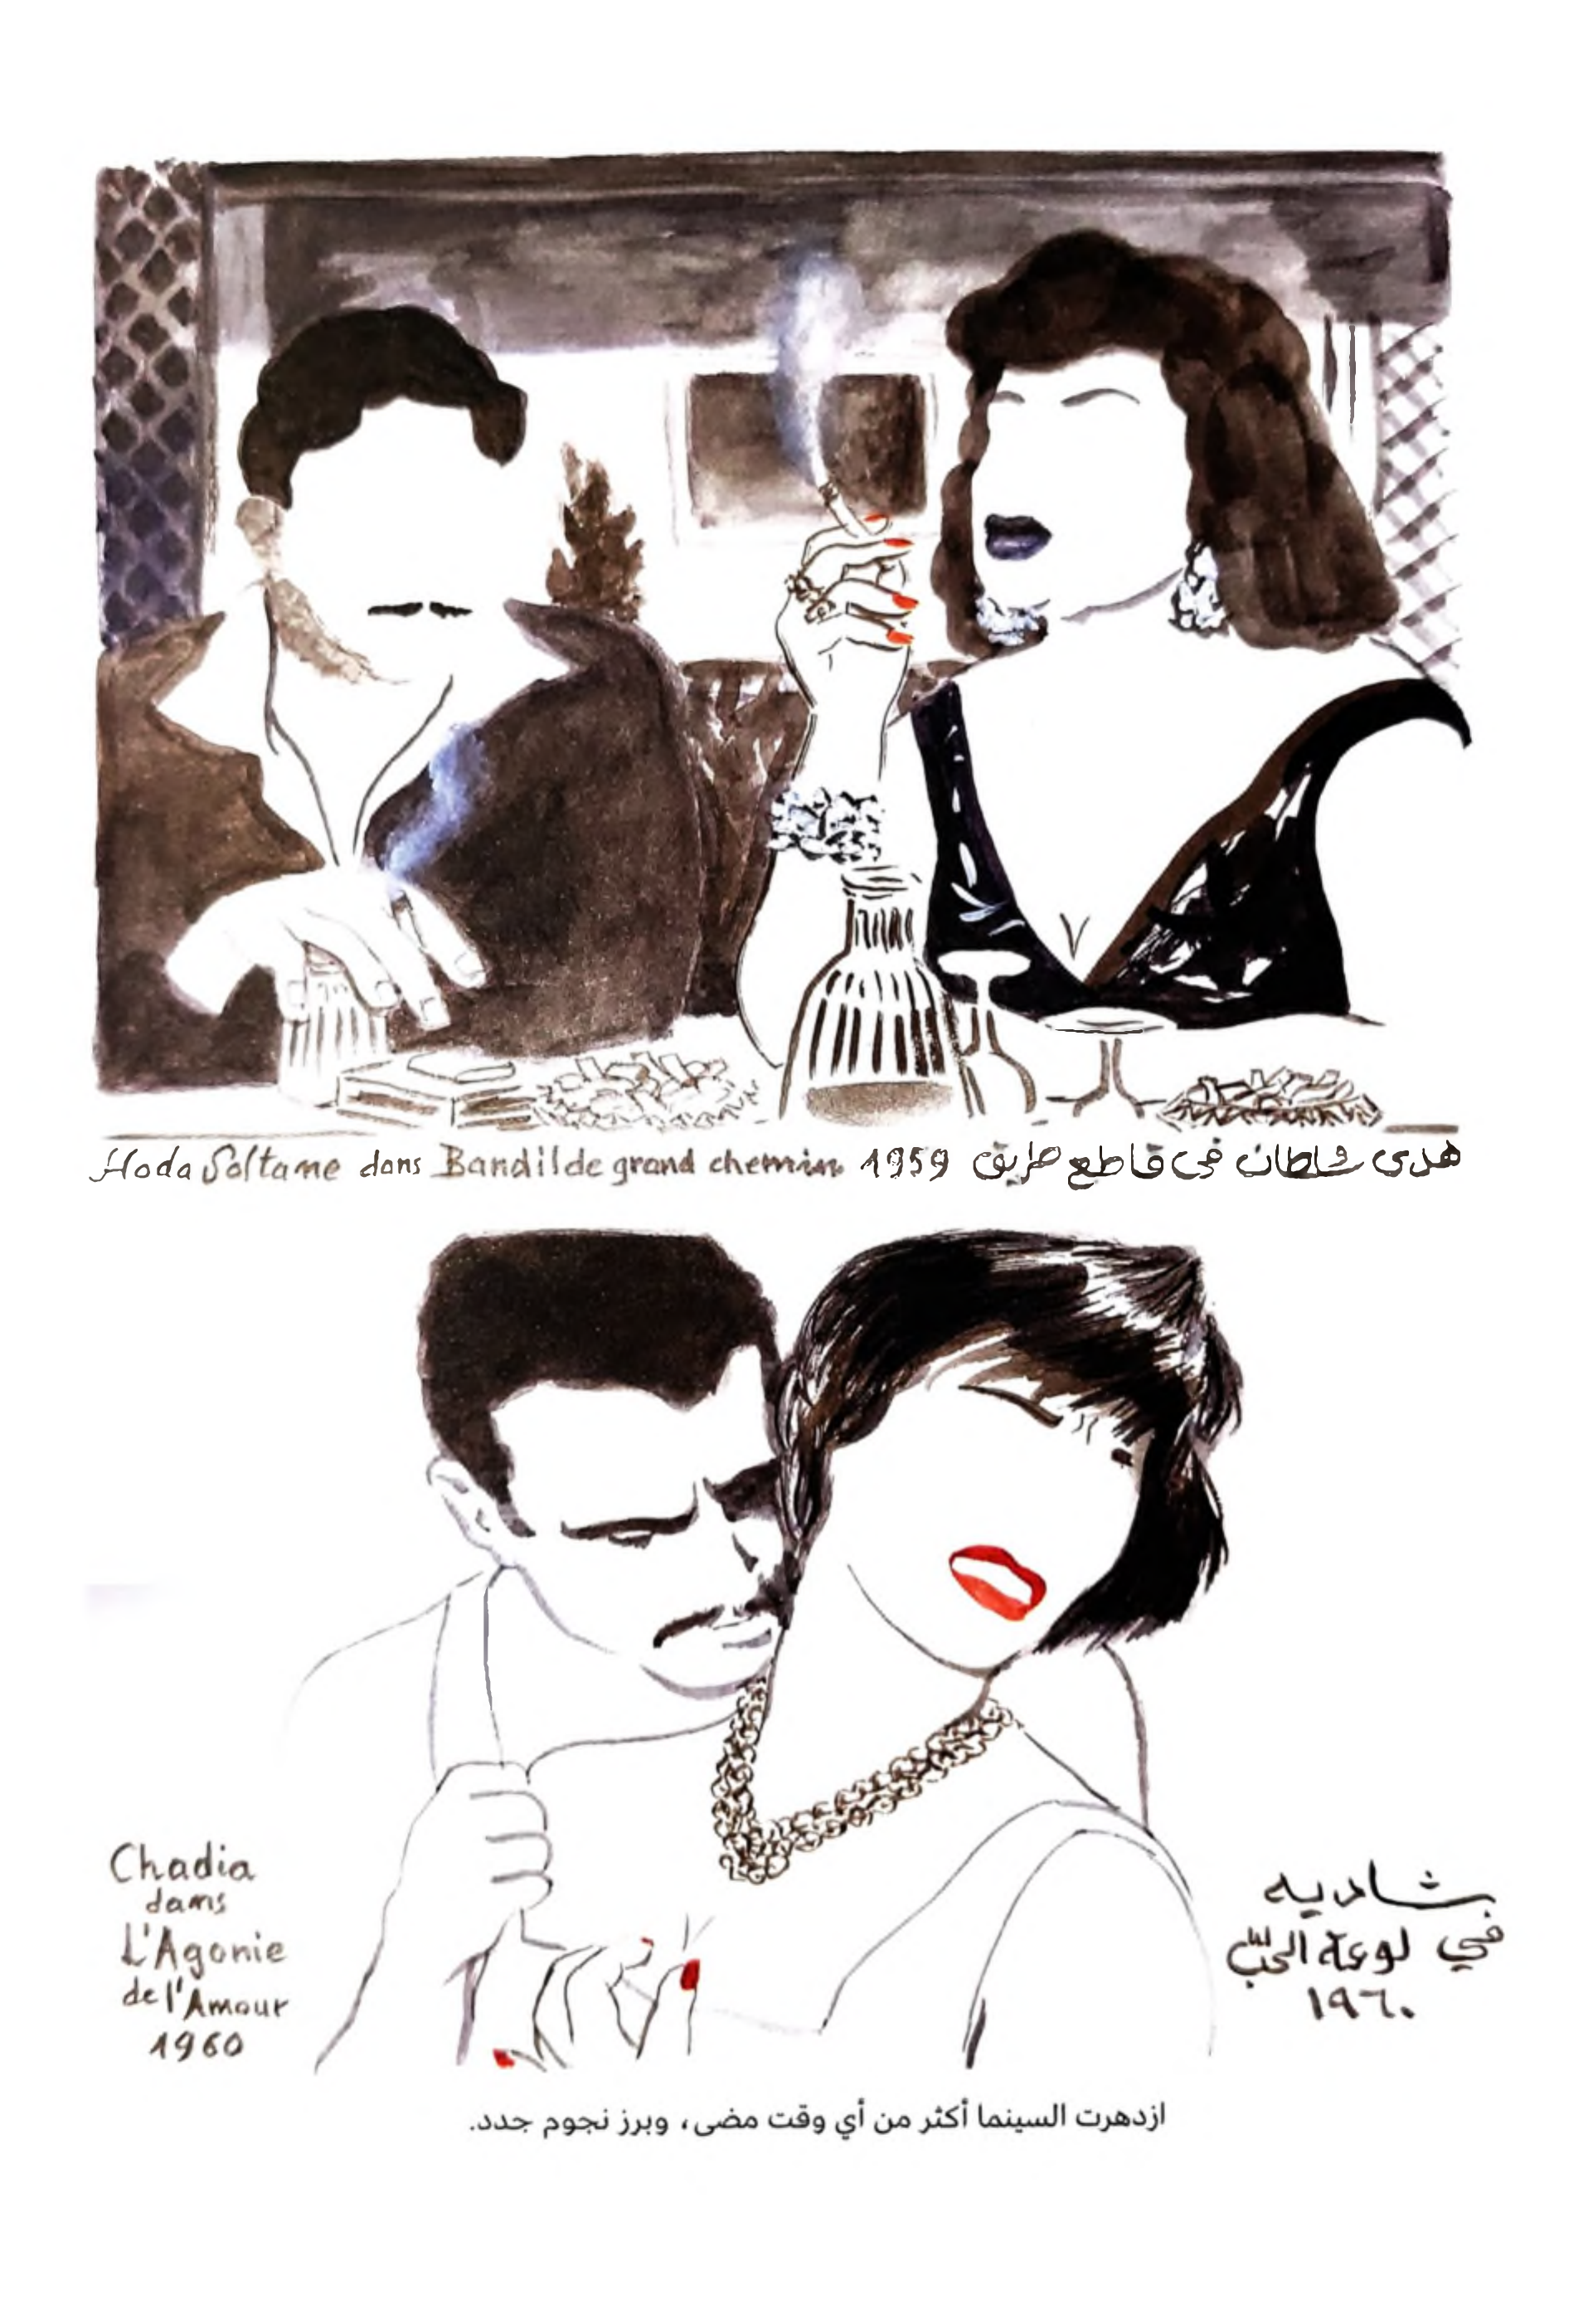 Hoda Soltane dans Bandit de grand chemin 1959 هدى سلطان في قاطع طريق
Chadia
dans
L'Agonie
de l'Amour
1960
شاديه
في لوعة الحبّ
١٩٦٠
ازدهرت السينما أكثر من أي وقت مضى، وبرز نجوم جدد.